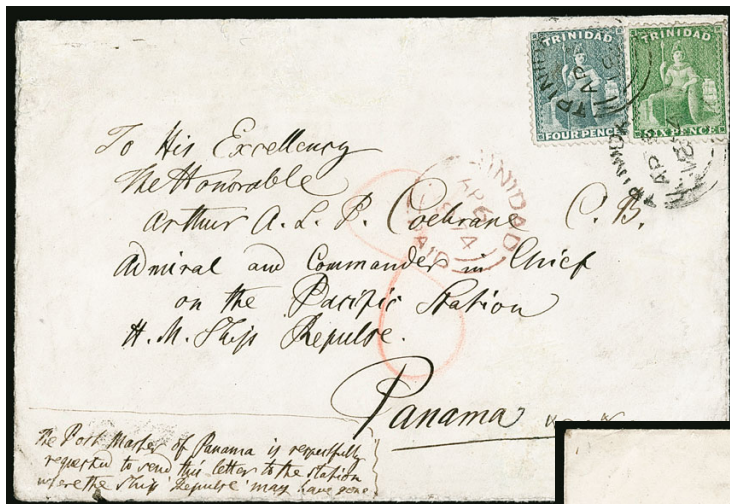 TRINIDAD TRINIDAD
FOUR PENCE SIX PENCE
TRINIDAD
AP 6
PAID
8
To His Excellency
The Honorable
Arthur A. L. P. Cochrane C. B.
Admiral and Commander in Chief
on the Pacific Station
H. M. Ship Repulse.
Panama
The Post Master of Panama is respectfully
requested to send this letter to the station
where the Ship 'Repulse' may have gone